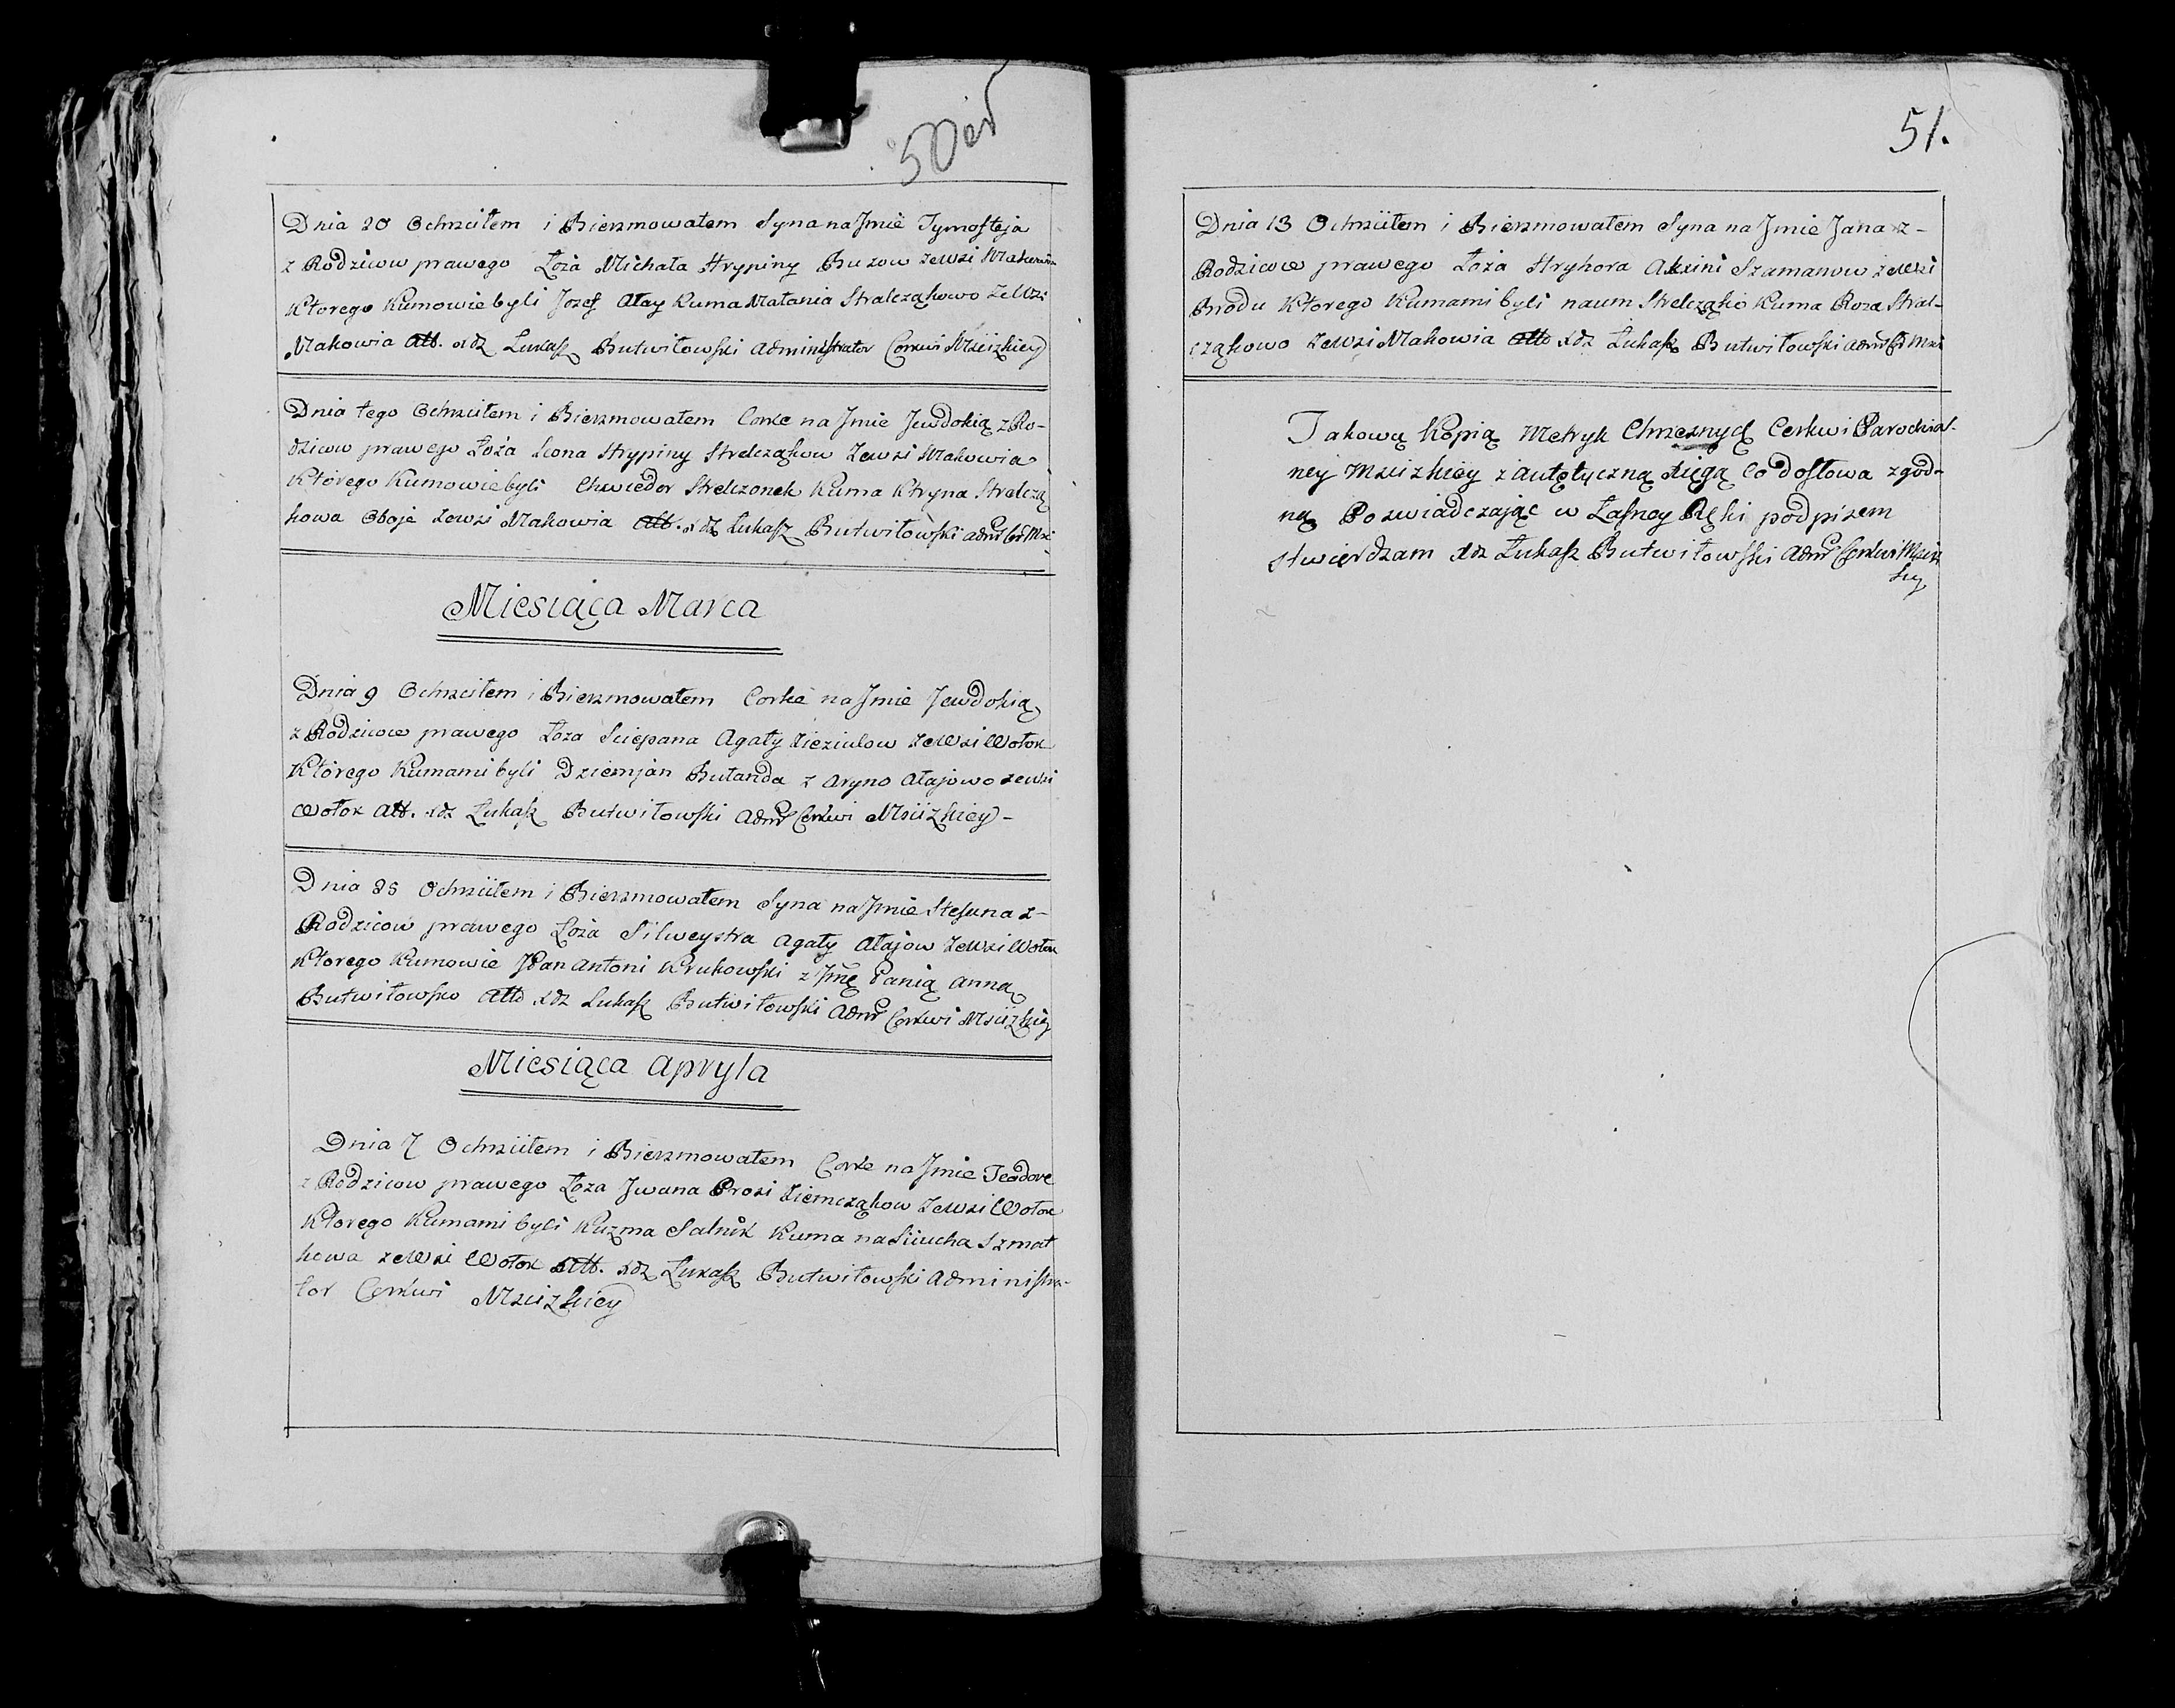 50
Dnia 20 Ochrzciłem i Bierzmowałem Syna na Jmie Tymofieja
z Rodzicow prawego Łoża Michała Hrypiny Buzow zewsi Makowia
Ktorego Kumowie byli Jozef Ałay Kuma Małania Stralcząkowo zeWsi
Makowia Att. Xdz Łukasz Butwiłowski Administrator Cerkwi Mścizkiey
Dnia tego Ochrzciłem i Bierzmowałem Corke na Jmie Jewdokią z Ro-
dzicow prawego Łoża Leona Hrypiny Strelcząkow zewsi Makowia
Ktorego Kumowie byli Chwiedor Strelczonek Kuma Ktryna Stralczą
kowa Oboje zewsi Makowia Att. Xdz Łukasz Butwiłowski Admr
Miesiąca Marca
Dnia 9 Ochrzciłem i Bierzmowałem Corke na Jmie Jewdokią
z Rodzicow prawego Łoża Sciepana Agaty zeWsi Wołok
Ktorego Kumami byli Dziemjan Bułanda z Aryno Ałajowo zewsi
Wołok Att. Xdz Łukasz Butwiłowski Admr Cerkwi Mścizkiey -
Dnia 25 Ochrzciłem i Bierzmowałem Syna na Jmie Stefana z-
Rodzicow prawego Łoża Silweystra Agaty Ałajow zeWsi Wołok
Ktorego Kumowie JPan Antoni Krukowski z Jmę Panią Anną
Butwiłowsko Atto Xdz Łukasz Butwiłowski Admr Cerkwi Mścizkiey
Miesiąca Apryla
Dnia 7 Ochrzciłem i Bierzmowałem Corke na Jmie Teodore
z Rodzicow prawego Łoża Jwana Prosi Ziemcząkow zewsi Wołok
Ktorego Kumami byli Kuzma Salnik Kuma naściucha Szmat
kowa zeWsi Wołok Att. Xdz Łukasz Butwiłowski Administra-
tor Cerkwi Mścizkiey
51.
Dnia 13 Ochrzciłem i Bierzmowałem Syna na Jmie Jana z-
Rodzicow prawego Łoża Hryhora Axini Szamanow zeWsi
Brodu Ktorego Kumami byli naum Strelcząko Kuma Roza Stral-
cząkowo zeWsi Makowia Atto Xdz Łukasz Butwiłowski Admr
Takową Kopią Metryk Chrzesnych Cerkwi Parochial-
ney Mscizkiey z autętyczną xięgą Co do słowa zgod-
ną Poswiadczając w Łasney Ręki podpisem
stwierdzam Xdz Łukasz Butwiłowski Admr Cerkwi Mściz
kiey